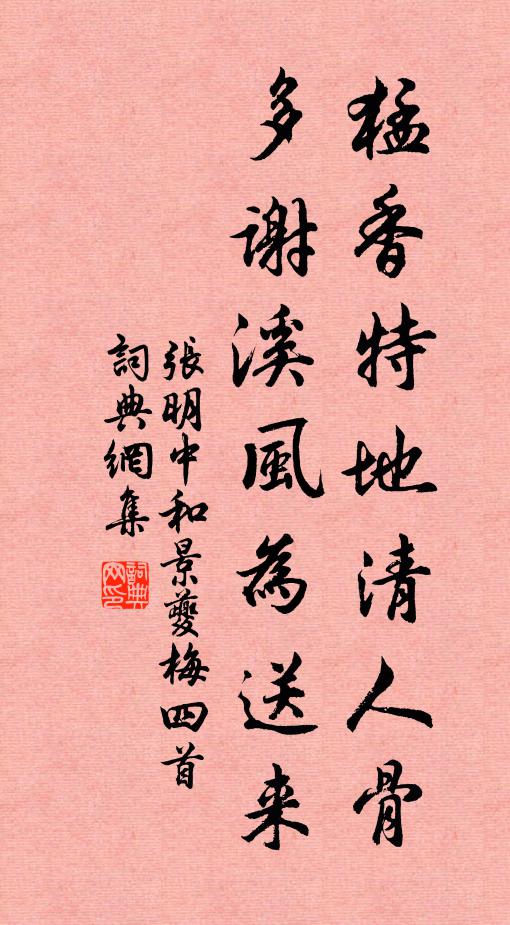 猛香特地清人骨
多謝溪風為送来
張明中和景夔梅四首
詞典網集
詞典網印